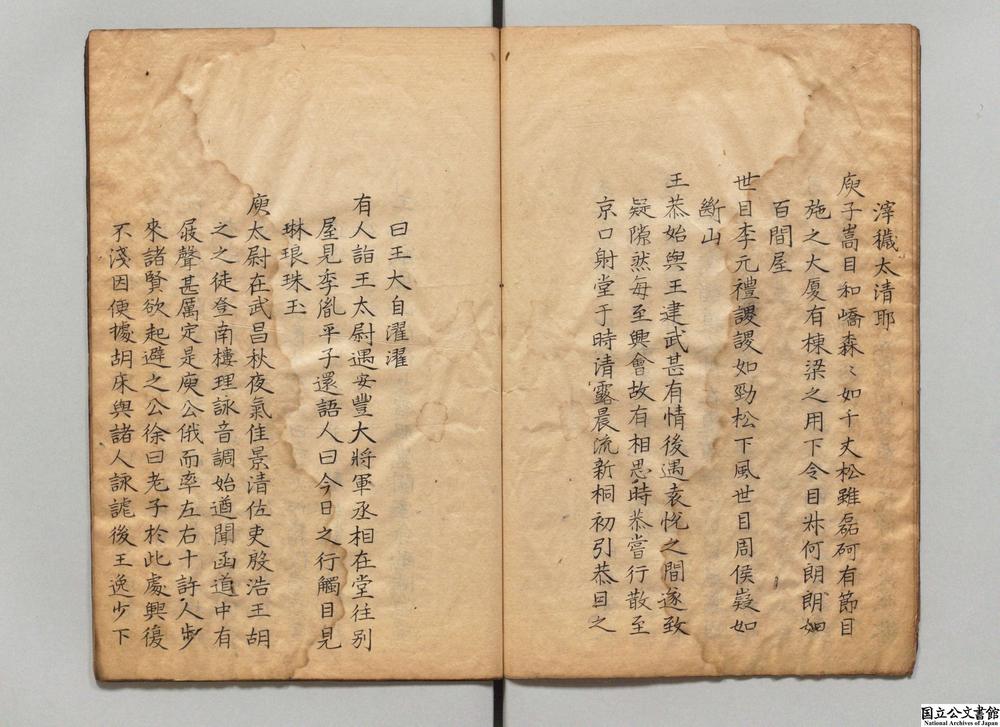 滓穢太清耶
庾子嵩目和嶠森〻如千丈松雖磊砢有節目
施之大厦有棟梁之用下令目叔何朗朗如
百間屋
世目李元禮謖謖如勁松下風世目周侯嶷如
斷山
王恭始與王建武甚有情後遇袁悅之間遂致
疑隙然每至興會故有相思時恭嘗行散至
京口射堂于時清露晨流新桐初引恭目之
曰王大自濯濯
有人詣王太尉遇安豐大將軍丞相在堂往别
屋見季胤平子還語人曰今日之行觸目見
琳琅珠玉
庾太尉在武昌秋夜氣佳景清佐吏殷浩王胡
之之徒登南樓理詠音調始遒聞函道中有
屐聲甚厲定是庾公俄而率左右十許人步
來諸賢欲起避之公徐曰老子於此處興復
不淺因便據胡床與諸人詠謔後王逸少下
国立公文書館
National Archives of Japan